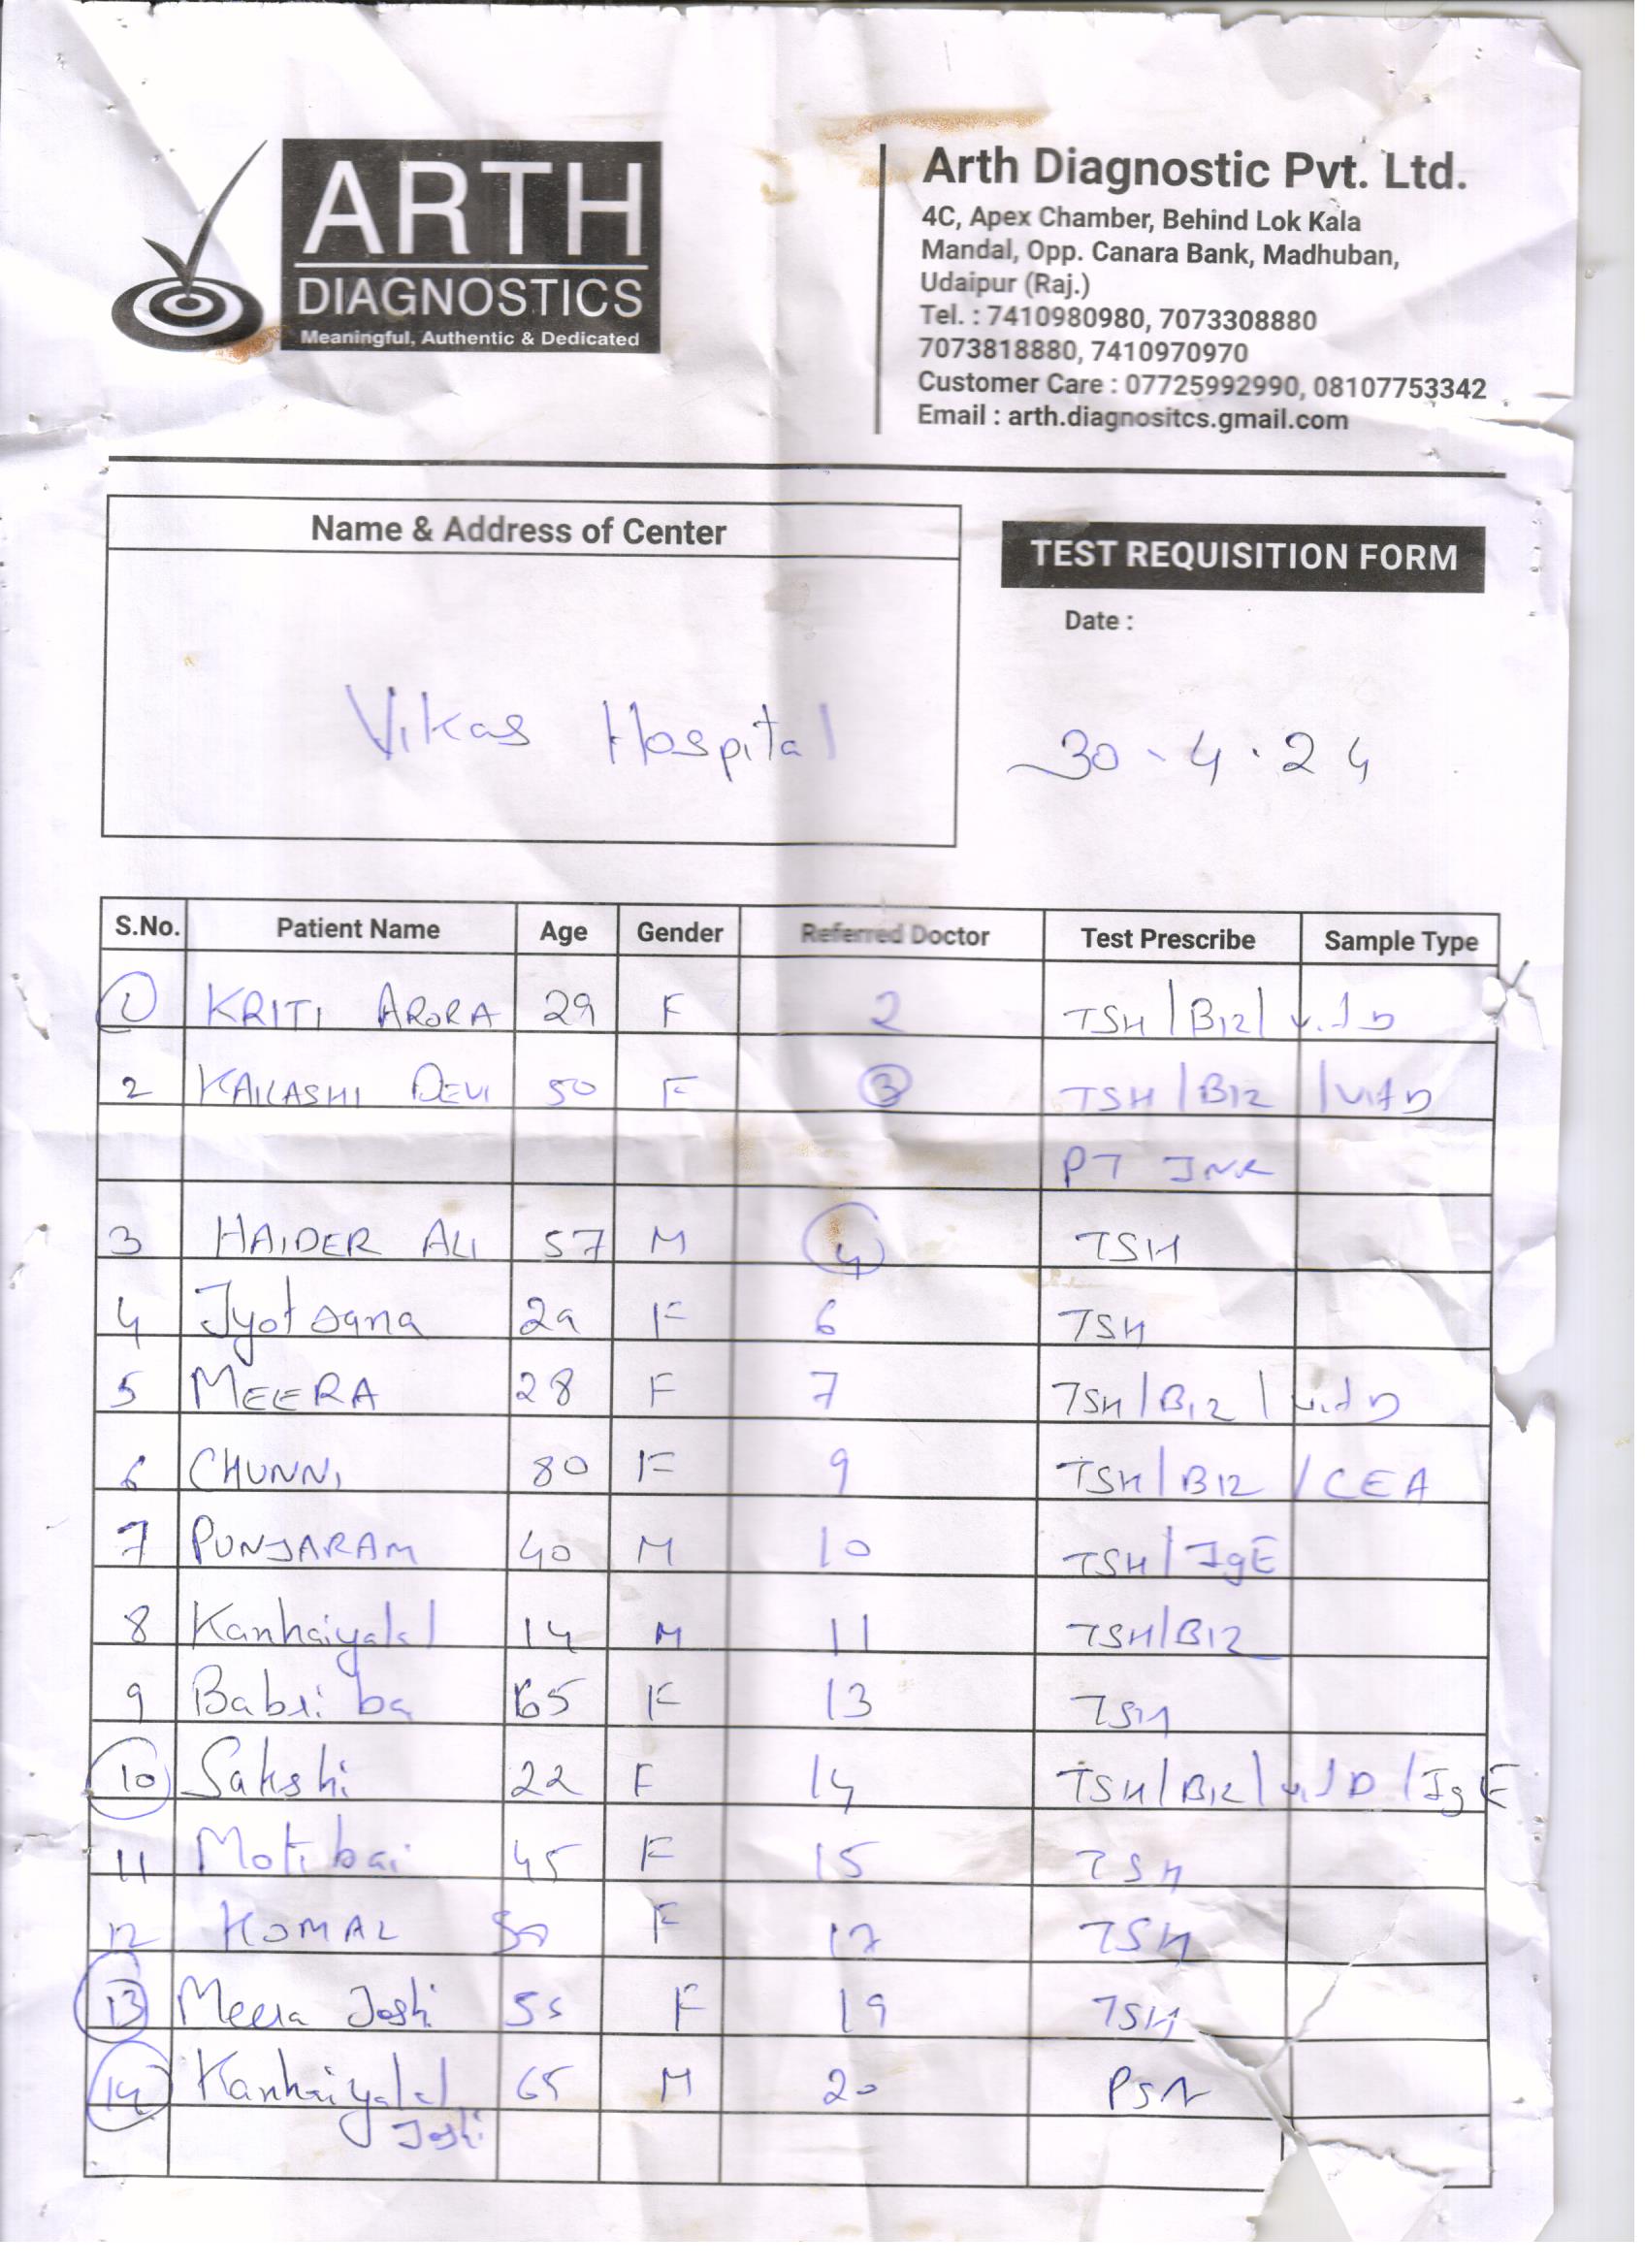 ARTH
DIAGNOSTICS
Meaningful, Authentic & Dedicated
Arth Diagnostic Pvt. Ltd.
4C, Apex Chamber, Behind Lok Kala
Mandal, Opp. Canara Bank, Madhuban,
Udaipur (Raj.)
Tel. : 7410980980, 7073308880
7073818880, 7410970970
Customer Care : 07725992990, 08107753342
Email : arth.diagnositcs.gmail.com
Name & Address of Center
Vikas Hospital
TEST REQUISITION FORM
Date :
30.4.24
S.No. Patient Name Age Gender Referred Doctor Test Prescribe Sample Type
1 KRITI ARORA 29 F 2 TSH | B12 | vit D
2 KAILASHI DEVI 50 F 3 TSH | B12 | Vit D
PT INR
3 HAIDER ALI 57 M 4 TSH
4 Jyotsana 29 F 6 TSH
5 MEERA 28 F 7 TSH | B12 | vit D
6 CHUNNI 80 F 9 TSH | B12 / CEA
7 PUNJARAM 40 M 10 TSH | IgE
8 Kanhaiyalal 14 M 11 TSH | B12
9 Babri ba 65 F 13 TSH
10 Sakshi 22 F 14 TSH | B12 | vit D | IgE
11 Moti bai 45 F 15 TSH
12 KOMAL F 17 TSH
13 Meera Joshi 55 F 19 TSH
14 Kanhaiyalal 65 M 20 PSA
Joshi